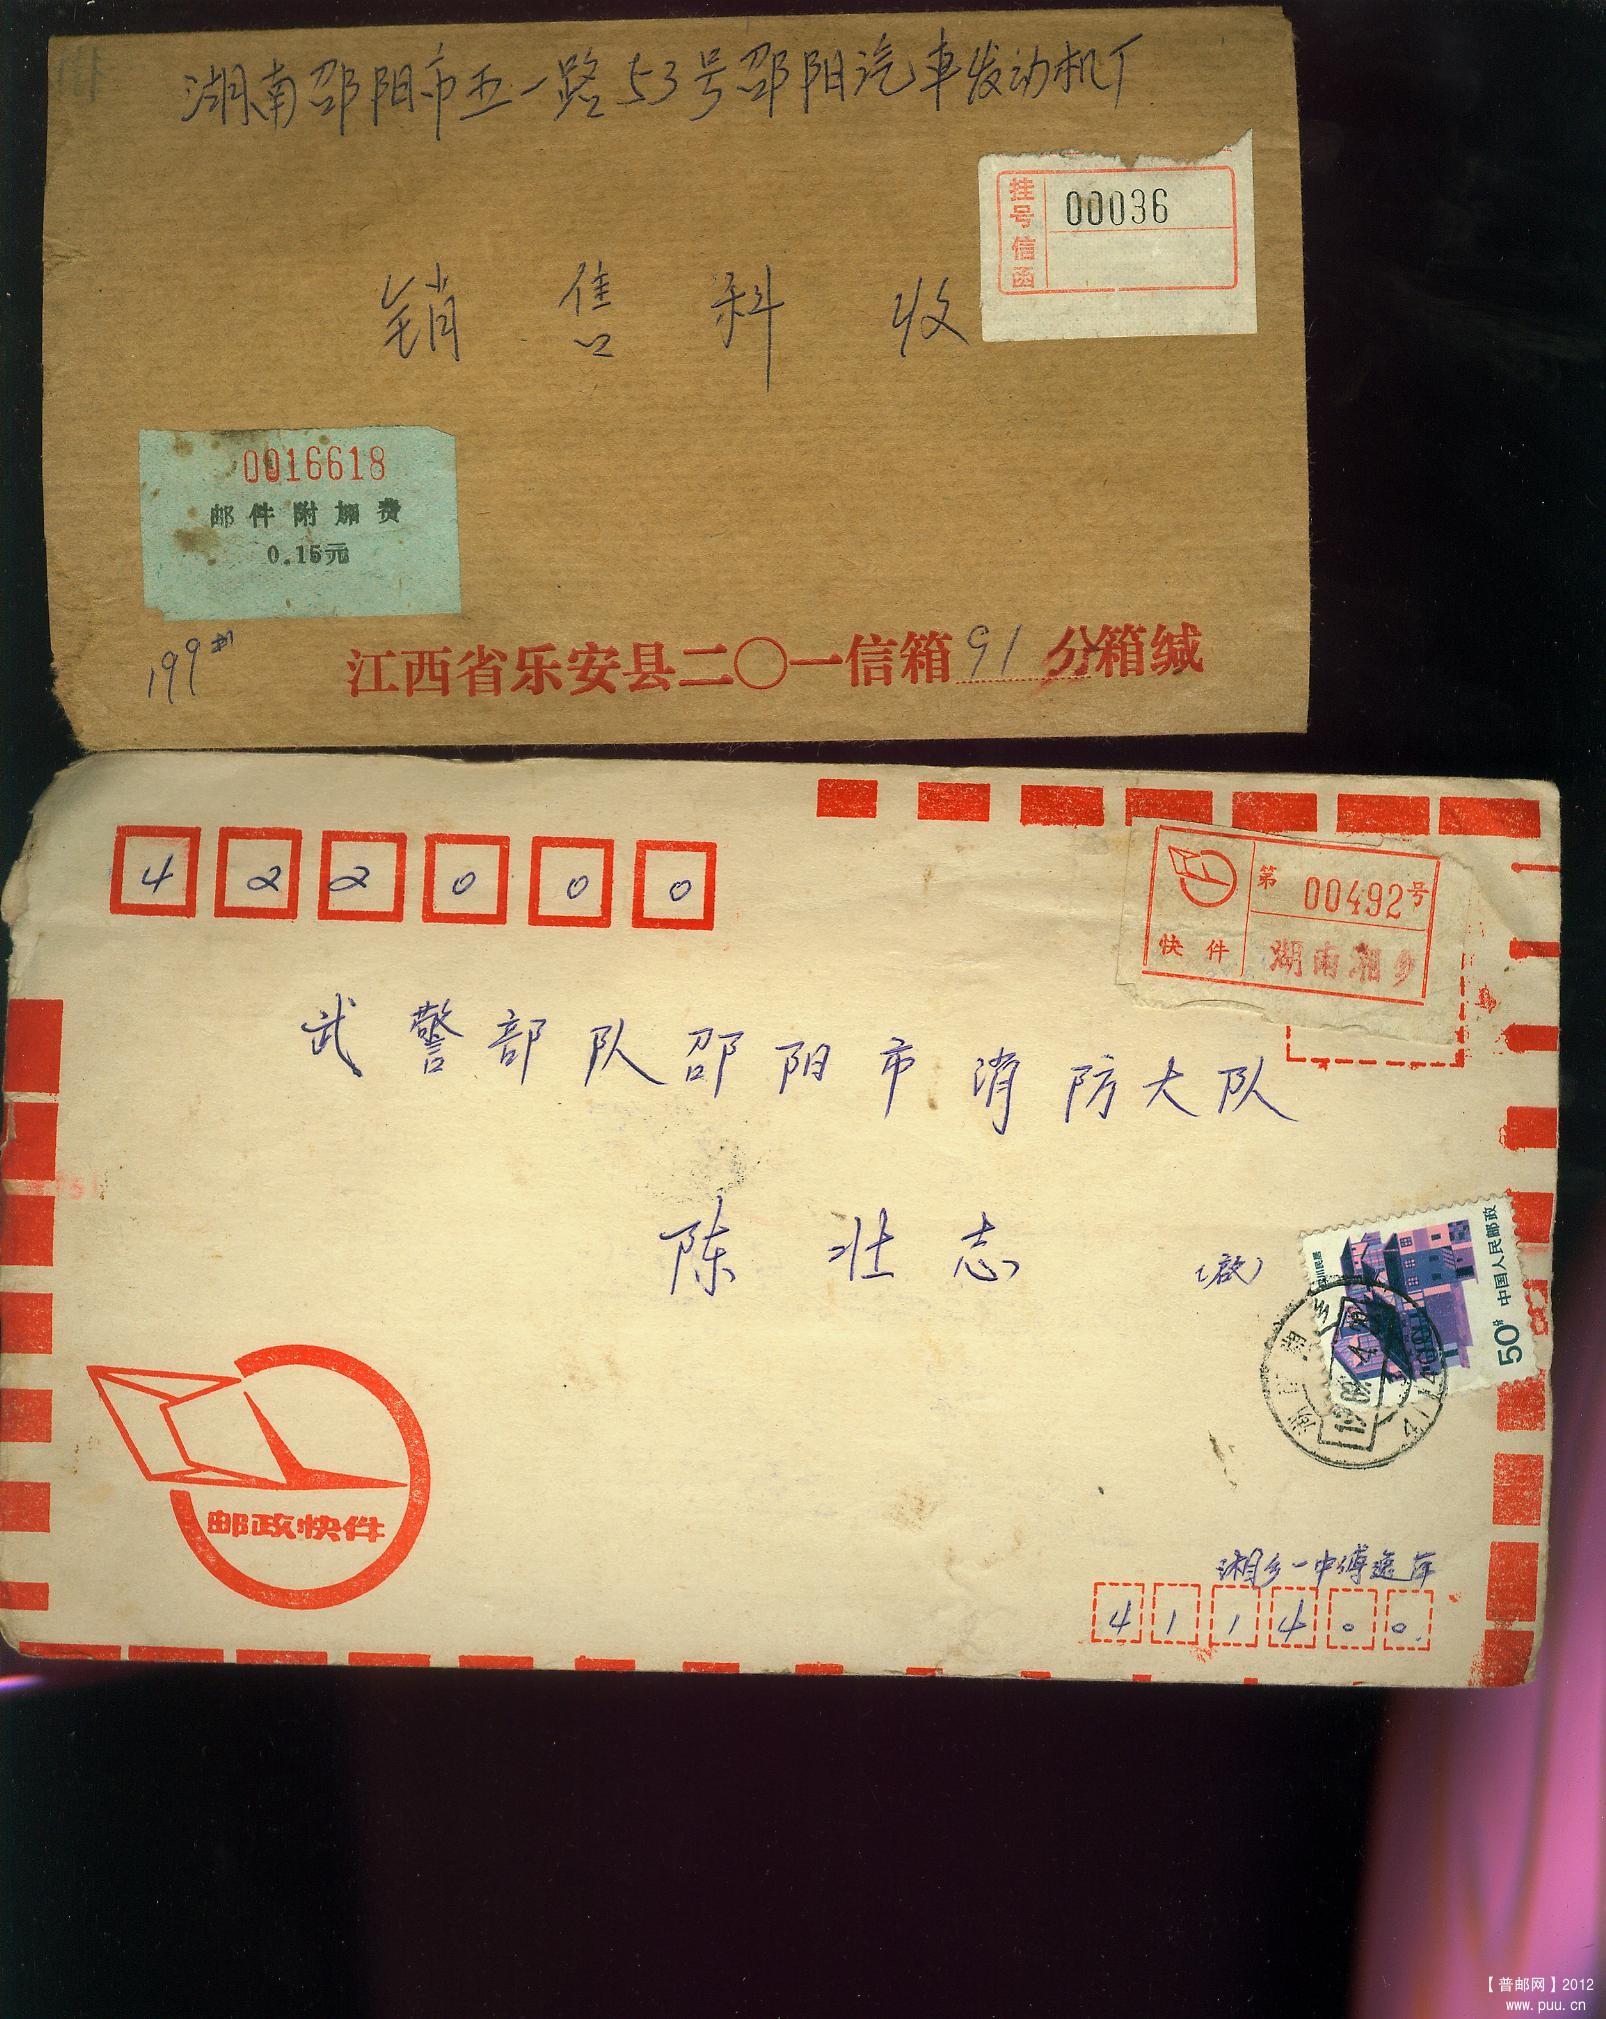 湖南邵阳市五一路53号邵阳汽車发动机厂
挂号信函
00036
销售科收
0016618
邮件附加费
0.15元
199#
江西省乐安县二〇一信箱91分箱缄
422000
第00492号
快件
湖南湘乡
武警部队邵阳市消防大队
陈壮志(啟)
中国人民邮政
四川民居
50分
邮政快件
湘乡一中傅逸年
411400
【普邮网】2012
www.puu.cn